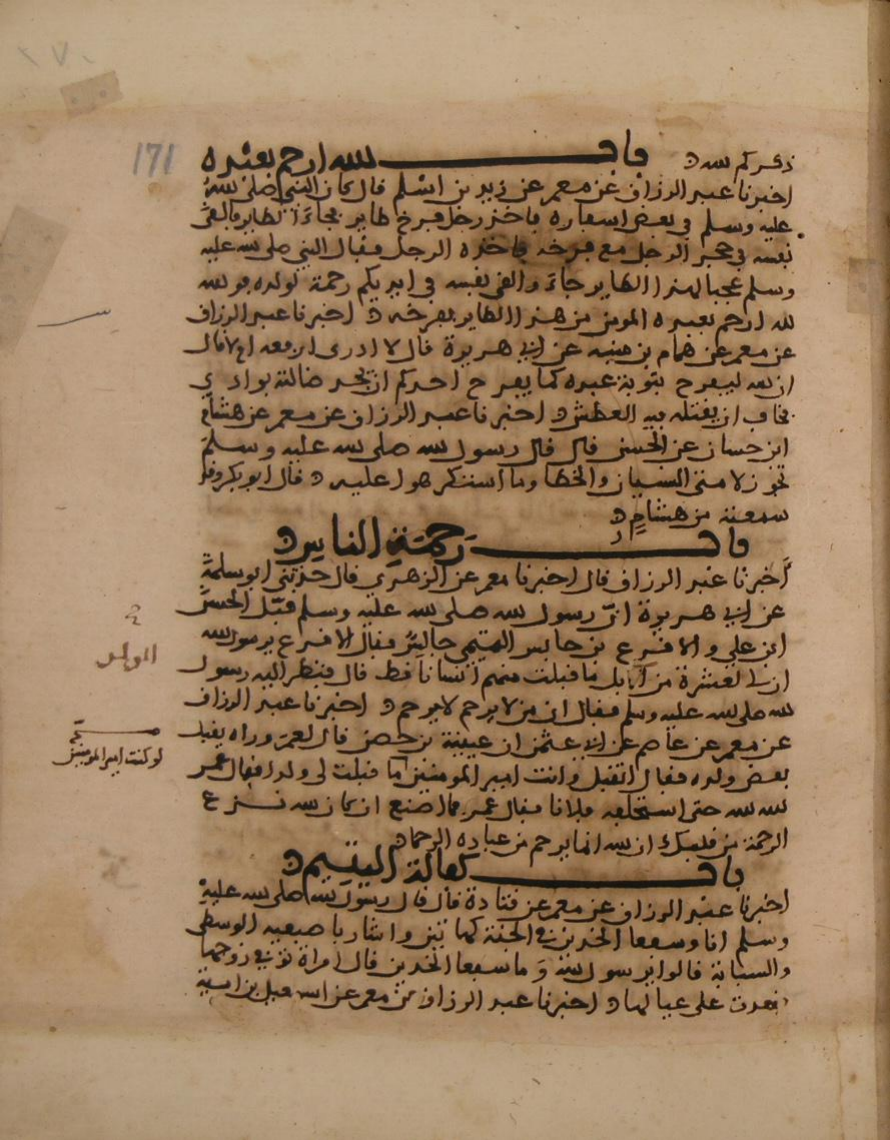 171
ذكركم لله
باب لله ارحم بعبده
اخبرنا عبد الرزاق عن معمر عن زيد بن اسلم قال كان النبي صلى الله
عليه وسلم في بعض اسفاره فاخذ رجل فرخ طاير فجاء الطاير فالقى
نفسه في حجر الرجل مع فرخه فاخذه الرجل فقال النبي صلى الله عليه
وسلم عجبا لهذا الطاير جاء والقى نفسه في ايديكم رحمة لولده فوالله
لله ارحم بعبده المومن من هذا الطاير بفرخه اخبرنا عبد الرزاق
عن معمر عن همام بن منبه عن ابي هريرة قال لا ادري ارفعه ام لا قال
ان الله ليفرح بتوبة عبده كما يفرح احدكم ان يجد ضالته بوادي
يخاف ان يقتله فيه العطش اخبرنا عبد الرزاق عن معمر عن هشام
ابن حسان عن الحسن قال قال رسول الله صلى الله عليه وسلم
تجوز لامتي النسيان والخطا وما استكرهوا عليه قال ابو بكر وقد
سمعته من هشام
باب رحمة الناس
اخبرنا عبد الرزاق قال اخبرنا معمر عن الزهري قال حدثني ابو سلمة
عن ابي هريرة ان رسول الله صلى الله عليه وسلم قبل الحسن
ابن علي والاقرع بن حابس التميمي جالس فقال الاقرع يرسول الله
ان لي لعشرة من ما قبلت منهم انسانا قط قال فنظر اليه رسول
الله صلى الله عليه وسلم فقال ان من لا يرحم لا يرحم اخبرنا عبد الرزاق
عن معمر عن عاصم عن ابي عثمن ان عيينة بن حصن قال لعمر وراه يقبل
بعض ولده فقال اتقبل وانت امير المومنين ما قبلت لي ولدا فقال عمر
الله الله حتى استحلفه ثلاثا فقال عمر فما اصنع ان كان الله نزع
الرحمة من قلبك ان الله انما يرحم من عباده الرحما
لو كنت امير المومنين
باب كفالة اليتيم
اخبرنا عبد الرزاق عن معمر عن قتادة قال قال رسول الله صلى الله عليه
وسلم انا وسفعا الخدين في الجنة كهاتين واشار باصبعيه الوسطى
والسبابة قالوا يرسول الله وما سفعا الخدين قال امراة توفي زوجها
فقعدت على عيالها اخبرنا عبد الرزاق عن معمر عن اسمعيل بن امية